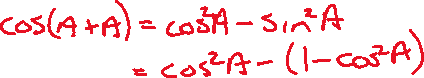 cos(A+A) = cos²A - sin²A
= cos²A - (1-cos²A)